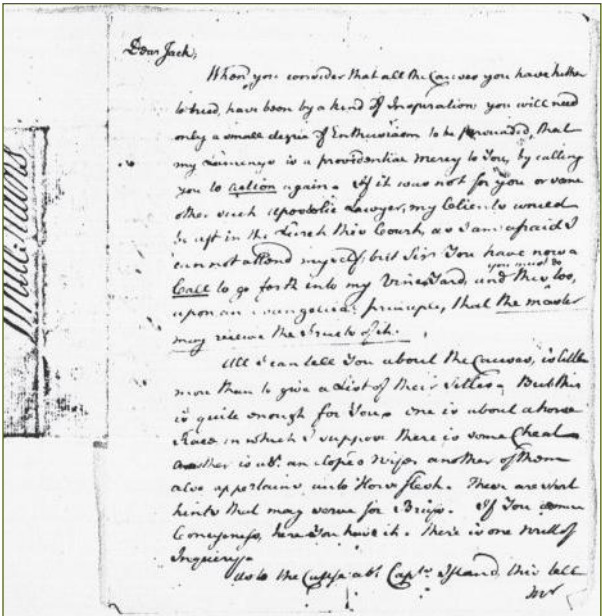 Dear Jack,
When you consider that all the Causes you have hither
to tried, have been by a kind of Inspiration you will need
only a small degree of Enthusiasm to be perswaded, that
my Lameness is a providential mercy to You, by calling
you to action again. If it was not for you or some
other such apostolic Lawyer, my Clients would
be left in the Lurch this Court, as I am afraid I
cannot attend myself, but Sir You have now a
you must do
Call to go forth into my VineYard, and this too,
upon an evangelical principle, that the master
may receive the Fruits of it.
All I can tell You about the Causes, is little
more than to give a List of their Titles. But this
is quite enough for You. one is about a horse
Race in which I suppose there is some Cheat
another is abt. an eloped Wife, another of them
also appertains unto Horse flesh. These are short
hints that may serve for Briefs. If You
here You have it. There is one Writ of
As to the abt. Captn. Island, this